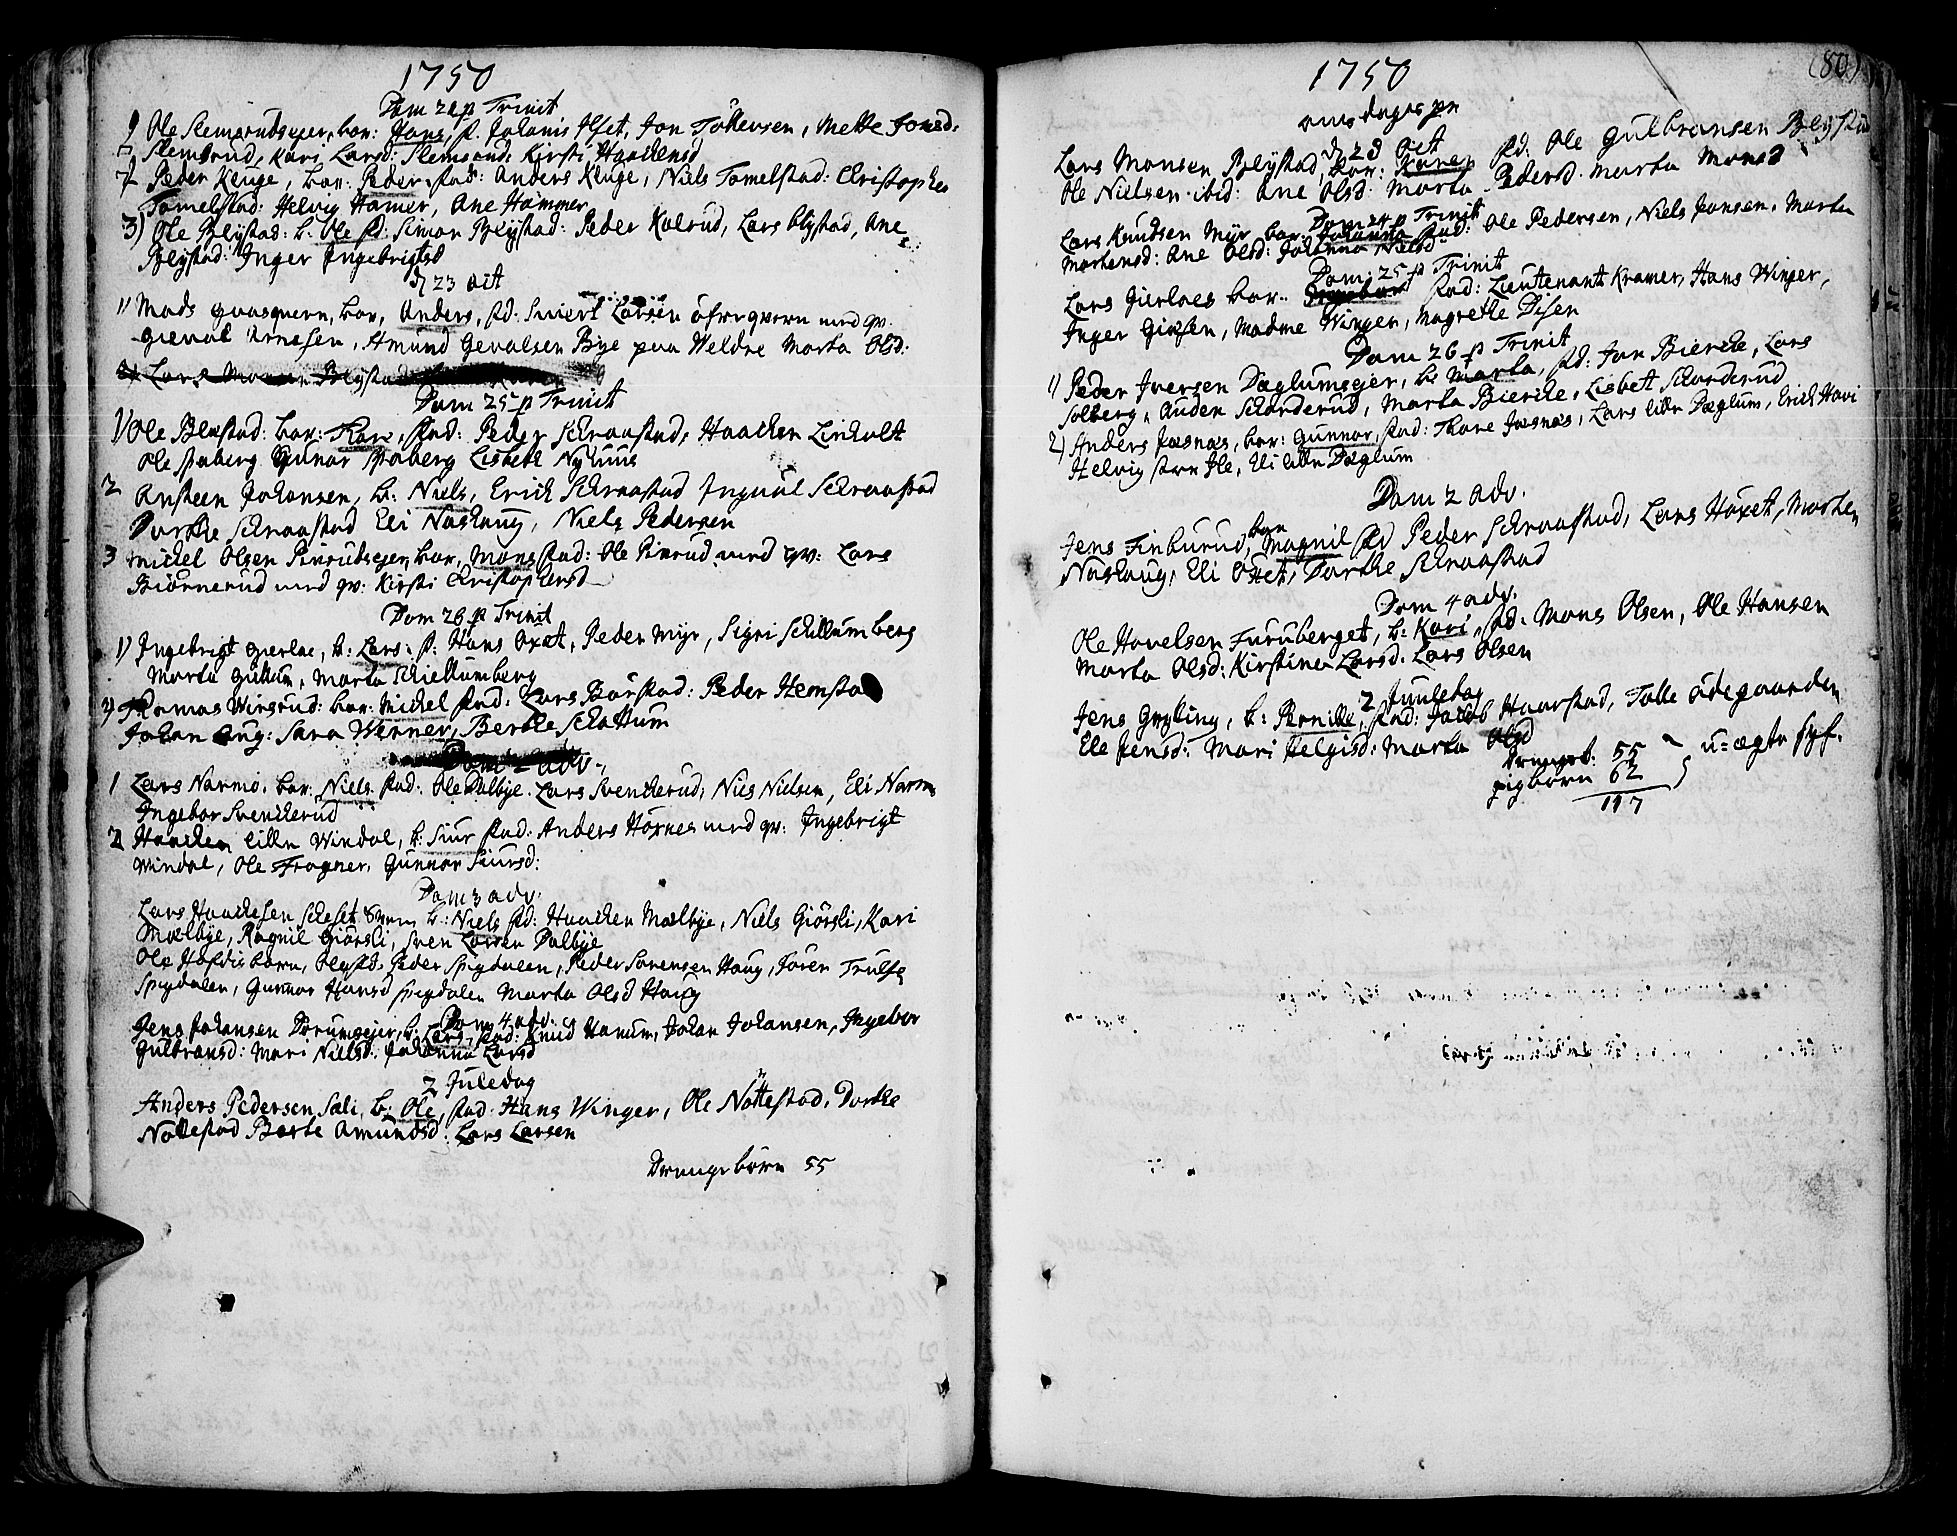 1750
Dom 22 p Trinit
Ole Slemsrudsejer, bar: Hans, p. Johanis Ilset, Jon Tollevsen, Mette Jonsd:
Slemsrud, Kari Larsd: Slemsrud: Kirsti Haackensd
2 Peder Kluge, bar: Peder, fad: Anders Kluge, Niels Tomelstad: Christopher
Tomelstad: Helvig Hamer, Ane Hammer
3) Ole Blÿstad: b: Ole fd: Simon Blÿstad: Peder Kolrud, Lars blÿstad, Ane
Blÿstad: Inger Ingebrigtsd
d 23 oct
1) Mads quasquern, bar, Anders, fd: Larsen med qv.
Arnesen, Amund Gevalsen Bÿe paa Weldre Marta Olsd:
Lars Monsen Blÿstad
Dom 25 p Trinit
1) Ole Blestad: bar: , fad: Peder Schraastad, Haacken Linholt
Ole staberg Gunor staberg Lisbeth Nÿhuus
2 Ansteen Johansen, b: Niels, Erich Schraastad Inguul Schraastad
Dorthe Schraastad Eli Nashaug, Niels Pedersen
3 Michel Olsen Pinrudsejer bar, Mons fad: Ole Pinrud med qv: Lars
Biørnerud med qv: Kirsti Christophersd
Dom 26 p Trinit
1) Ingebrigt gierloe, b: Lars, p: Hans Oxet, Peder Mÿr, Sigri Schillumberg
Marta gullum, Marta Schiellumberg
2) Thomas Wirsrud: bar: Michel fad: Lars Borstad: Peder Hemstad
Johan Aug: Sara Werner, Berthe Schattum
Dom 2 adv.
1 Lars Narmo, bar: Niels fad: Ole Dalbÿe. Lars Svenckerud, Nies Nielsen, Eli Narmo
Ingebor Svenckerud
2 Haacken lille Windol, b: Siur fad: Anders Hornes med qv: Ingebrigt
Windol, Ole Frogner, Gunnor Siursd:
Dom 3 adv.
Lars Haackesen b.: Niels fd: Haacken Mælbÿe, Niels Giørsli, Kari
Mælbÿe, Ragnil Giørsli, Sven Larsen Dalbÿe
Ole barn, Ole fd: Peder Spigdalen, Peder Sørensen Haug, Joren Trulse
Spigdalen, Gunnor Hansd spigdalen Marta Olsd Haug
Dom 4 adv.
Jens Johansen Dorumsejer, b: Lars, fad: Knud Hanum, Johan Johansen, Ingebor
Gulbransd: Mari Nielsd: Johanna Larsd
2 Juledag
Anders Pedersen Sæli, b: Ole, fad: Hans Winger, Ole Nøttestad, Dorthe
Nøttestad Berte Amundsd: Lars Larsen
Drenge børn 55
(80)
1750
d 23 oct
Lars Monsen Blÿstad, bar: Karen fd: Ole Gulbransen Blÿstad
Ole Nielsen ibid: Ane Olsd: Marta Pedersd. Marta Monsd
Dom 24 p Trinit
Lars Knudsen Mÿr bar: Johanna fad: Ole Pedersen, Niels Jonsen, Marta
Mortensd: Ane Olsd: Johanna Nielsd
Dom: 25 p Trinit
Lars Gierloes bar: Ingebor fad: Lieutenant Kramer, Hans Winger,
Inger Giefsen, Madme Winger, Magrethe Disen
Dom 26 p Trinit
1) Peder Iversen Dæglumsejer, b: Marta, fd: Jon Biercke, Lars
Solberg, Auden Scharderud, Marta Biercke, Lisbett Scharderud
2) Anders Jasnæs, bar: Gunnor, fad: Thore Jasnæs, Lars lille Dæglum, Erich Hovi
Helvig store Ile, Eli lille Dæglum
Dom 2 adv.
Jens Finburud, barn Magnil fd Peder Schraastad, Lars Hoxet, Morten
Nashaug, Eli Oxet, Dorthe Schraastad
Dom 4 adv.
Ole Havelsen Furuberget, b: Kari, fd. Mons Olsen, Ole Hansen
Marta Olsd: Kirstina Larsd. Lars Olsen
2 Juuledag
Jens Grÿling, b: Pernille, fad: Jacob Haarstad, Tolle Ødegaarden
Ele Jensd: Mari Helgisd: Marta Olsd
Drengeb: 55
pigbørn 62
117
u=ægte